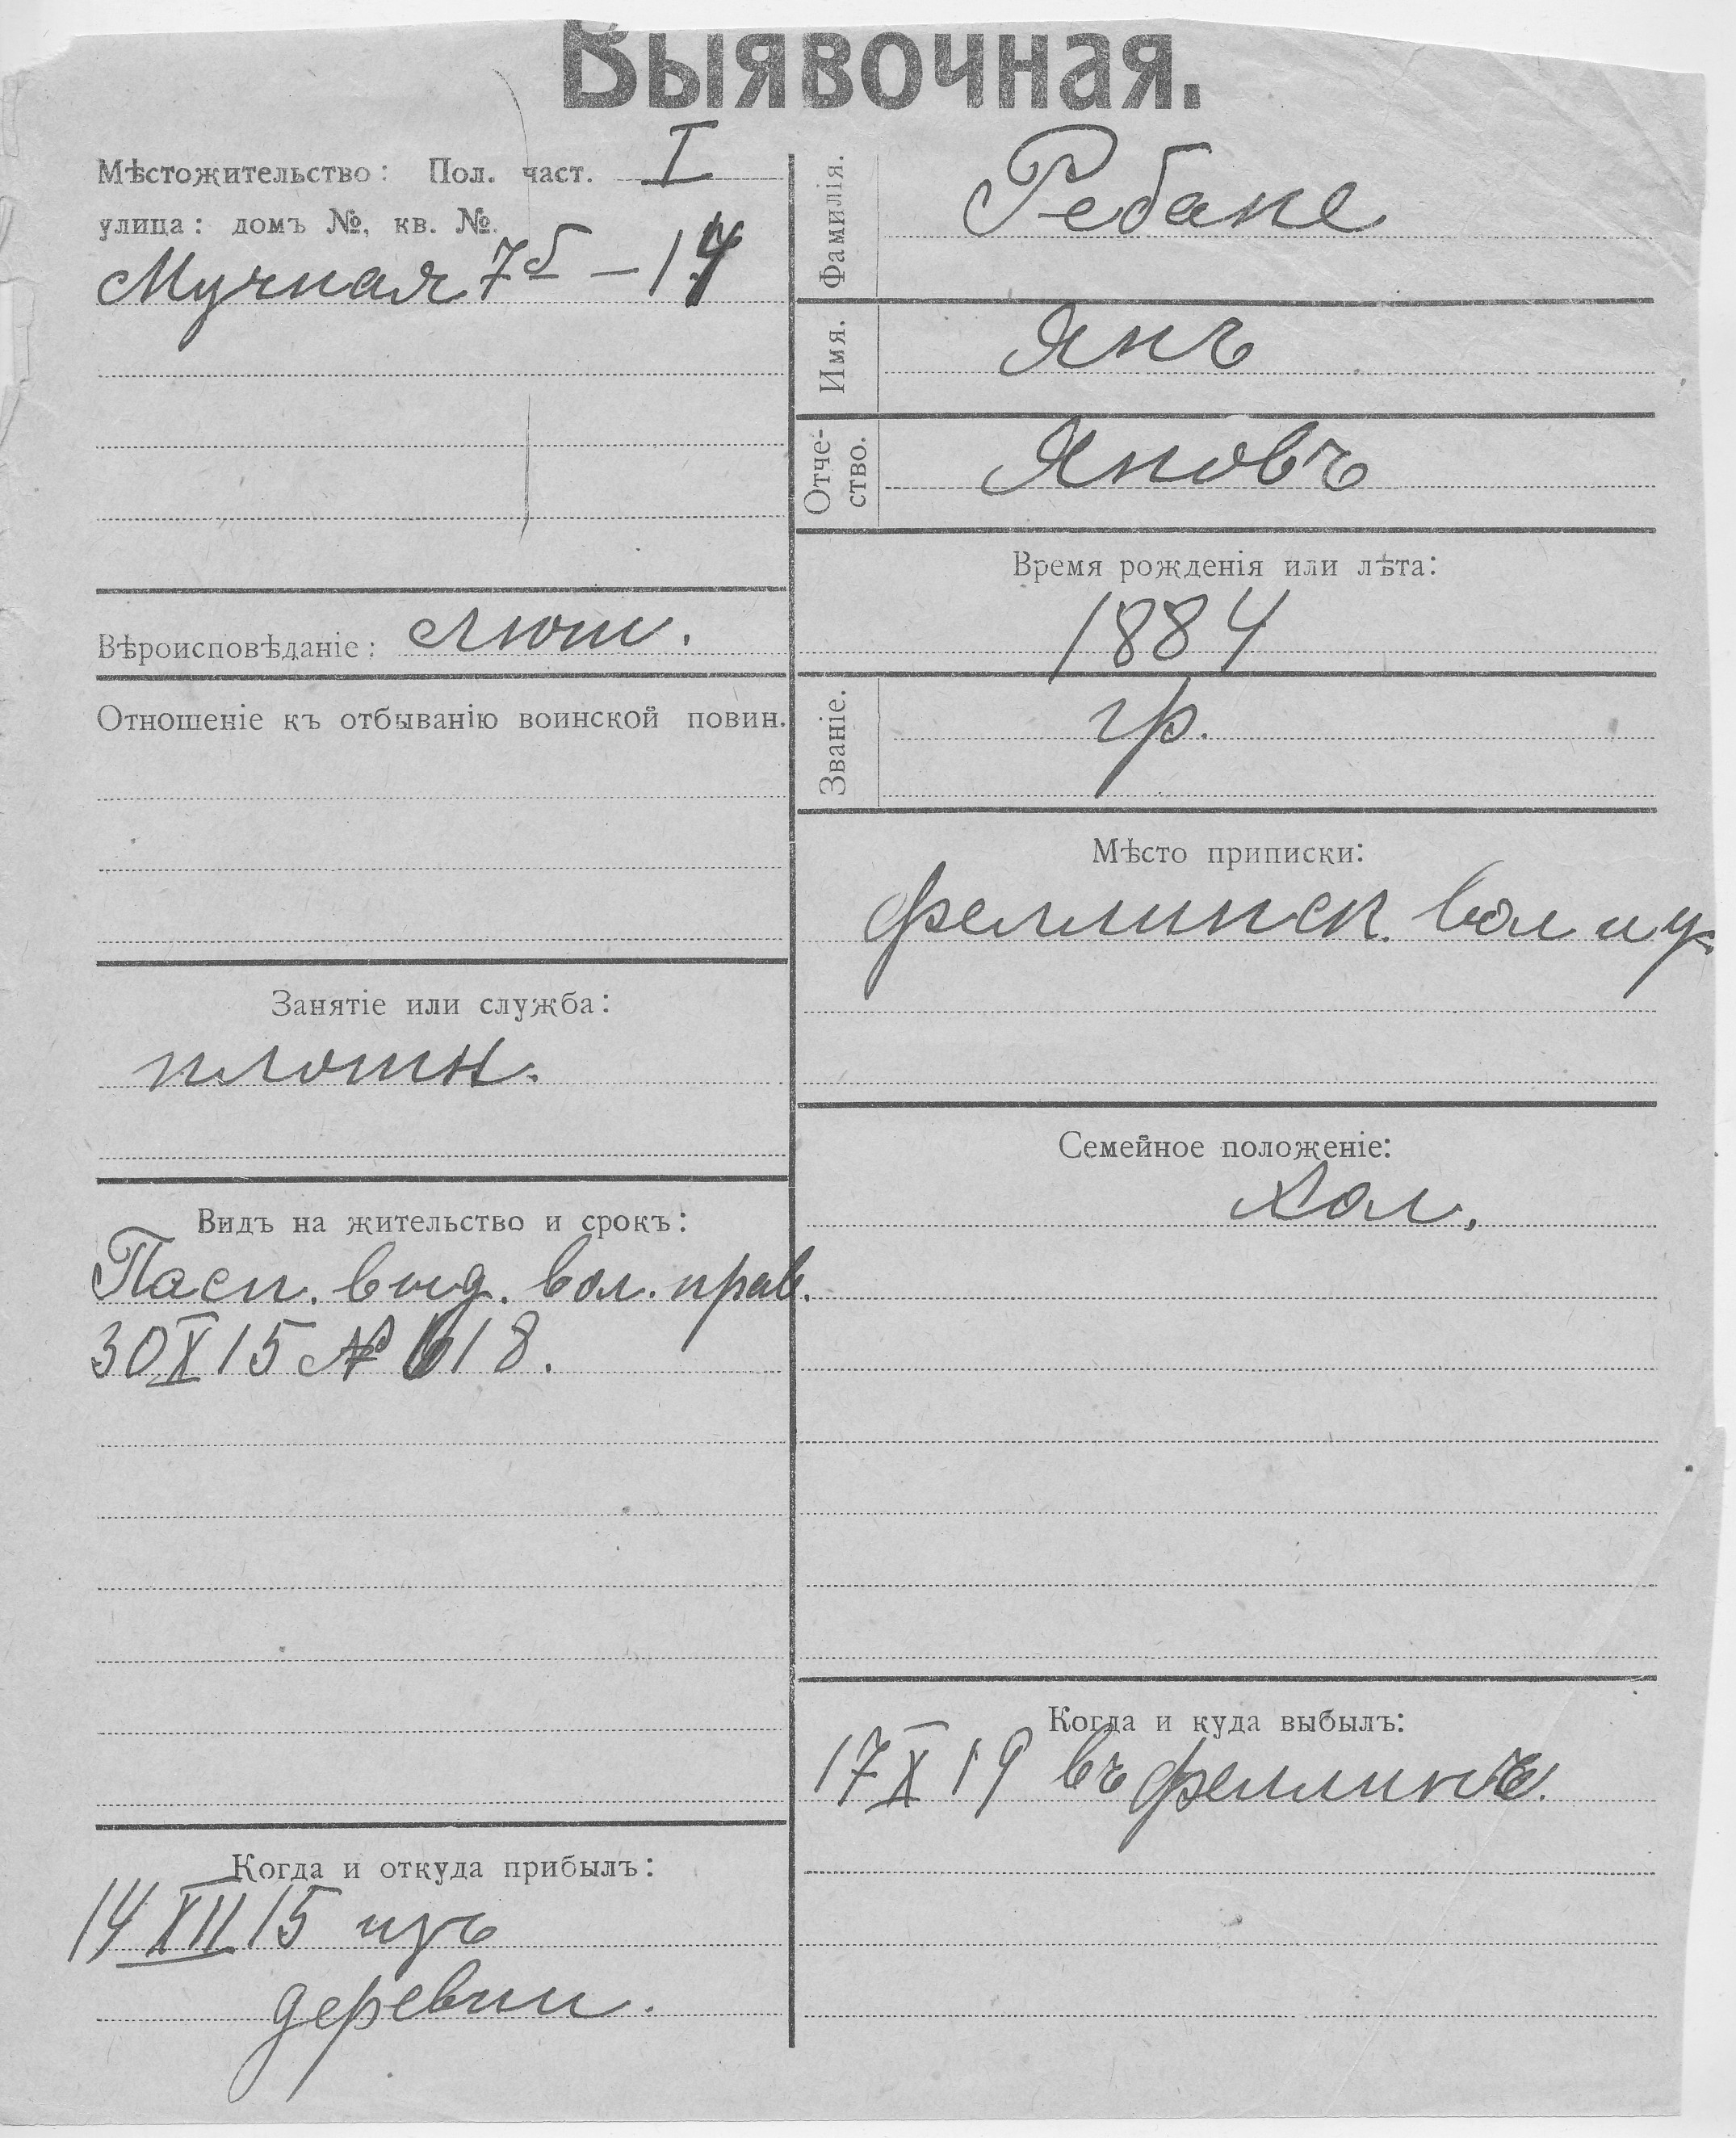 Выявочная.
Мѣстожительство: Пол. част. I
улица: домъ №, кв. №.
Мучная 7б – 14
Вѣроисповѣданіе: Лют.
Отношеніе къ отбыванію воинской повин.
Занятіе или служба:
плотн.
Видъ на жительство и срокъ:
Пасп. выд. вол. прав.
30 X 15 № 618.
Когда и откуда прибылъ:
14 XII 15 изъ
деревни.
Фамилія. Ребане
Имя. Янъ
Отче-
ство. Яновъ
Время рожденія или лѣта:
1884
Званіе. гр.
Мѣсто приписки:
Феллинск. вол и у.
Семейное положеніе:
Хол.
Когда и куда выбылъ:
17 X 19 въ Феллинъ.